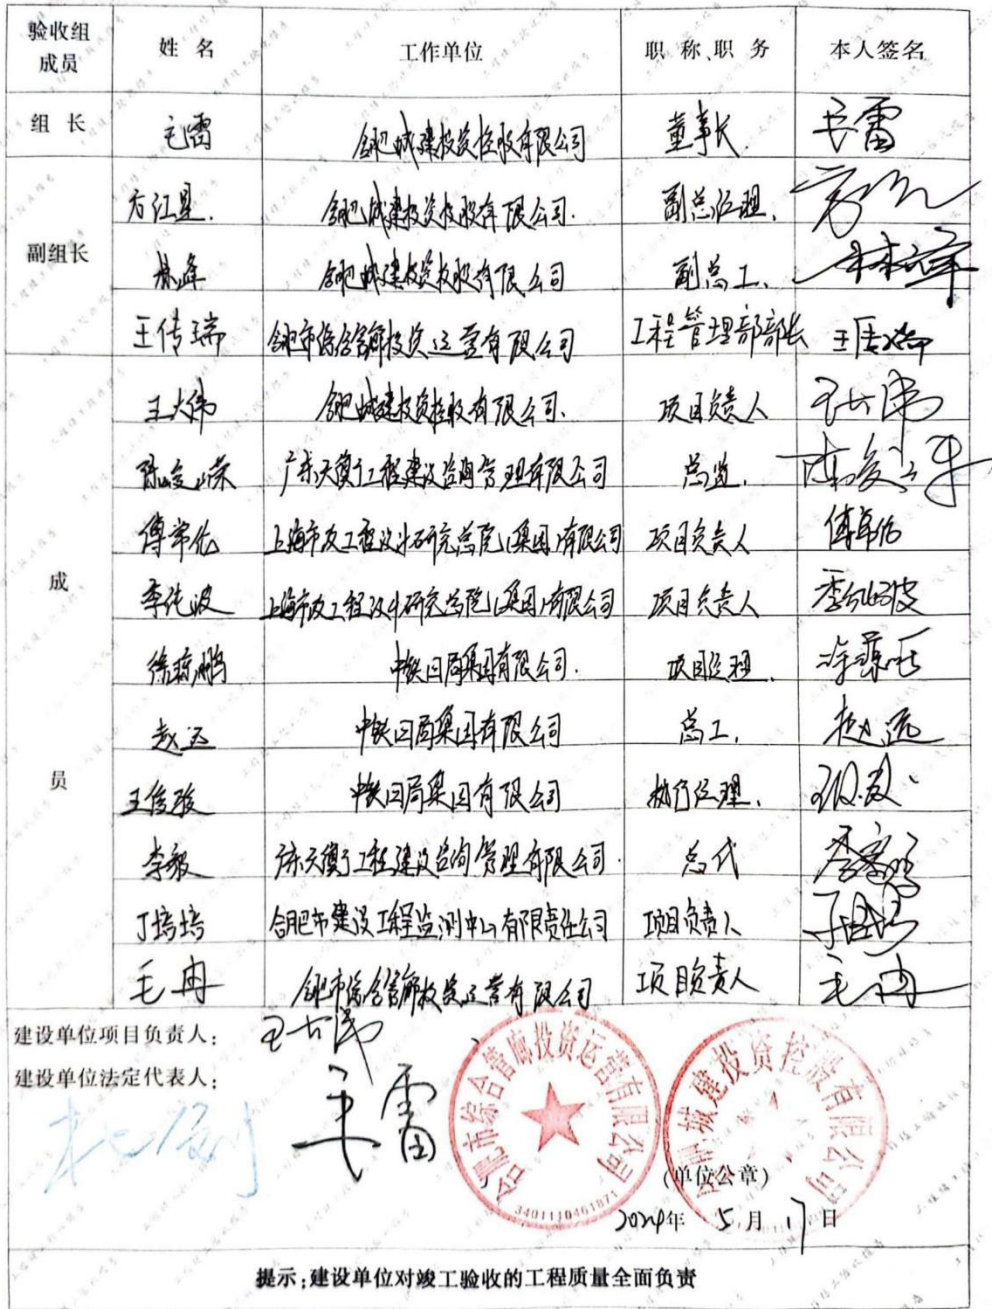 验收组成员 姓 名 工作单位 职 称、职 务 本人签名
组 长 毛雷 合肥城建投资控股有限公司 董事长 毛雷
方江星 合肥城建投资控股有限公司. 副总经理.
副组长
林峰 合肥城建投资控股有限公司 副总工. 林峰
王传瑞 合肥市综合管廊投资运营有限公司 工程管理部部长
王大伟 合肥城建投资控股有限公司. 项目负责人 王大伟
广东天衡工程建设咨询管理有限公司 总监.
上海市政工程设计研究总院(集团)有限公司 项目负责人
成
上海市政工程设计研究总院(集团)有限公司 项目负责人
中铁四局集团有限公司. 项目经理.
中铁四局集团有限公司 总工.
员
中铁四局集团有限公司 执行经理.
李毅 广东天衡工程建设咨询管理有限公司. 总代
丁培培 合肥市建设工程监测中心有限责任公司 项目负责人
毛冉 合肥市综合管廊投资运营有限公司 项目负责人 毛冉
建设单位项目负责人: 王大伟
建设单位法定代表人: 毛雷
合肥市综合管廊投资运营有限公司
3401110461871
合肥城建投资控股有限公司
(单位公章)
2024年 5月 17日
提示:建设单位对竣工验收的工程质量全面负责